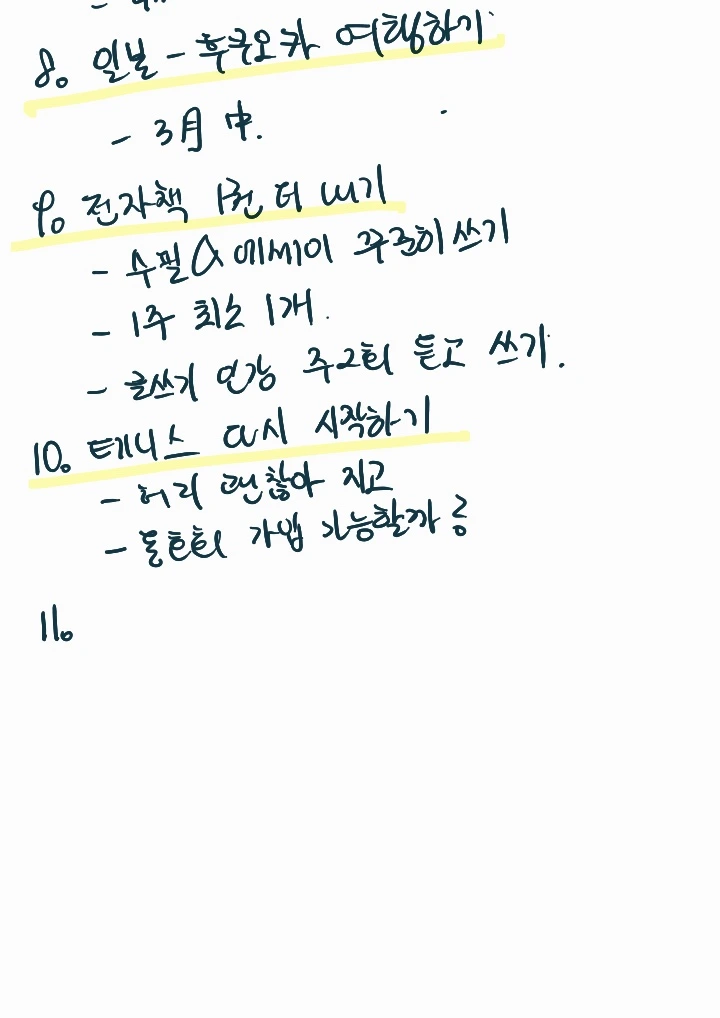 8. 일본 - 후쿠오카 여행하기
- 3月 中.
9. 전자책 1권 더 내기
- 수필 & 에세이 꾸준히 쓰기
- 1주 최소 1개.
- 글쓰기 인강 주2회 듣고 쓰기.
10. 테니스 다시 시작하기
- 허리 괜찮아 지고
- 동호회 가입 가능할까
11.